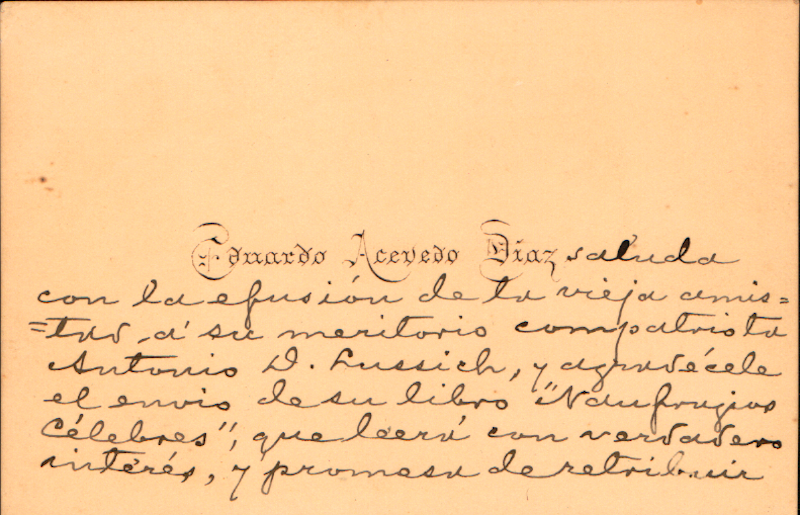 Eduardo Acevedo Díaz saluda
con la efusión de la vieja amis=
=tad, á su meritorio compatriota
Antonio D. Lussich, y agradécele
el envio de su libro "Naufragios
Célebres", que leerá con verdadero
interés, y promesa de retribuir